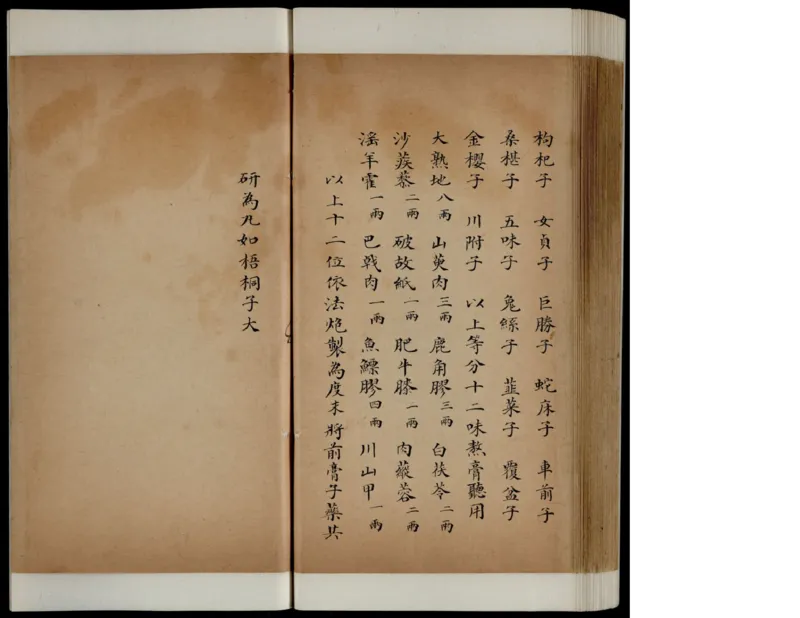 枸杞子　女貞子　巨勝子　蛇床子　車前子
桑椹子　五味子　兔絲子　韮菜子　覆盆子
金櫻子　川附子　以上等分十二味熬膏聽用
大熟地八兩　山萸肉三兩　鹿角膠三兩　白茯苓二兩
沙蒺蔾二兩　破故紙一兩　肥牛膝一兩　肉蓯蓉二兩
滛羊霍一兩　巴戟肉一兩　魚鰾膠四兩　川山甲一兩
以上十二位依法炮製為度末將前膏子藥共
研為凡如梧桐子大